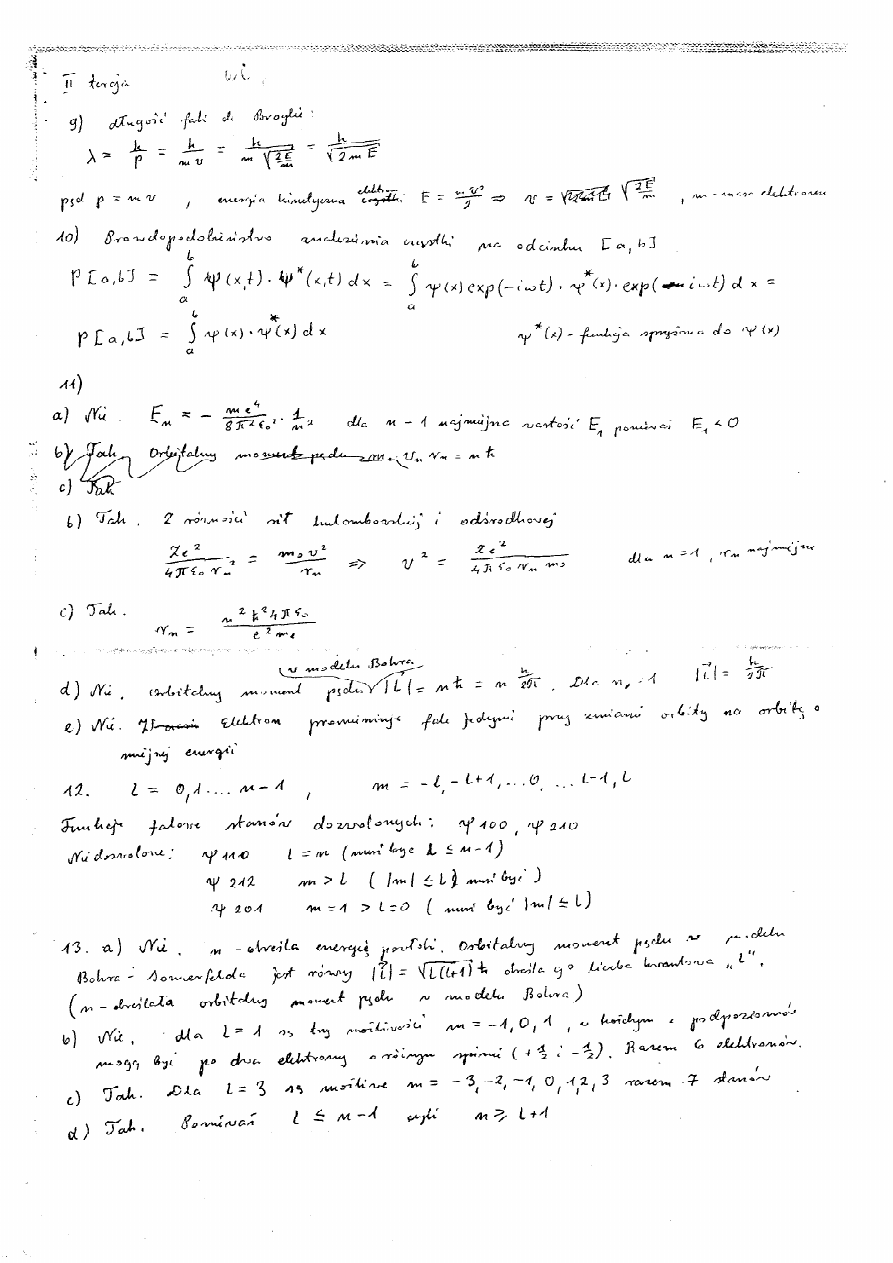 II tercja
9) długość fali de Broglie:
λ = h/p = h/(m v) = h/(m √(2E/m)) = h/√(2 m E)
pęd p = m v , energia kinetyczna elektr. E = m v²/2 ⇒ v = √(2E/m) , m - masa elektronu
10) Prawdopodobieństwo znalezienia cząstki na odcinku [a, b]
P[a,b] = ∫_a^b ψ(x,t) · ψ*(x,t) dx = ∫_a^b ψ(x) exp(-iωt) · ψ*(x) · exp(iωt) dx =
P[a,b] = ∫_a^b ψ(x) · ψ*(x) dx ψ*(x) - funkcja sprzężona do ψ(x)
11)
a) Nie. E_n = - m e⁴/(8π²ε₀² · 1/n² dla n - 1 najmniejsza wartość E₁ ponieważ E₁ < 0
b) Tak. Orbitalny moment pędu m v_n r_n = n ħ
c) Tak
b) Tak. Z równości sił kulombowskiej i odśrodkowej
Ze²/(4πε₀ r_n²) = m₀ v²/r_n ⇒ v² = Ze²/(4πε₀ r_n m₀) dla n = 1, r_n najmniejsze
c) Tak.
r_n = n² ħ² 4πε₀/(e² m e)
w modelu Bohra
d) Nie, orbitalny moment pędu |L⃗| = nħ = n h/2π. Dla n = 1 |L⃗| = h/2π
e) Nie. Elektron promieniuje fale jedynie przy zmianie orbity na orbitę o
mniejszej energii
12. l = 0,1 .... n-1 , m = -l, -l+1, ...0, ... l-1, l
Funkcje falowe stanów dozwolonych: ψ 100 , ψ 210
Niedozwolone: ψ 110 l = n (musi być l ≤ n-1)
ψ 212 m > l ( |m| ≤ l musi być )
ψ 201 m = 1 > l = 0 ( musi być |m| ≤ l)
13. a) Nie. n - określa energię powłoki. Orbitalny moment pędu w modelu
Bohra - Sommerfelda jest równy |l⃗| = √(l(l+1)) ħ określa go liczba kwantowa „l".
(n - określała orbitalny moment pędu w modelu Bohra)
b) Nie, dla l = 1 są trzy możliwości m = -1, 0, 1 , w każdym z podpoziomów
mogą być po dwa elektrony o różnym spinie (+½ i -½). Razem 6 elektronów.
c) Tak. Dla l = 3 są możliwe m = -3, -2, -1, 0, 1, 2, 3 razem 7 stanów
d) Tak. Ponieważ l ≤ n-1 czyli n ≥ l+1